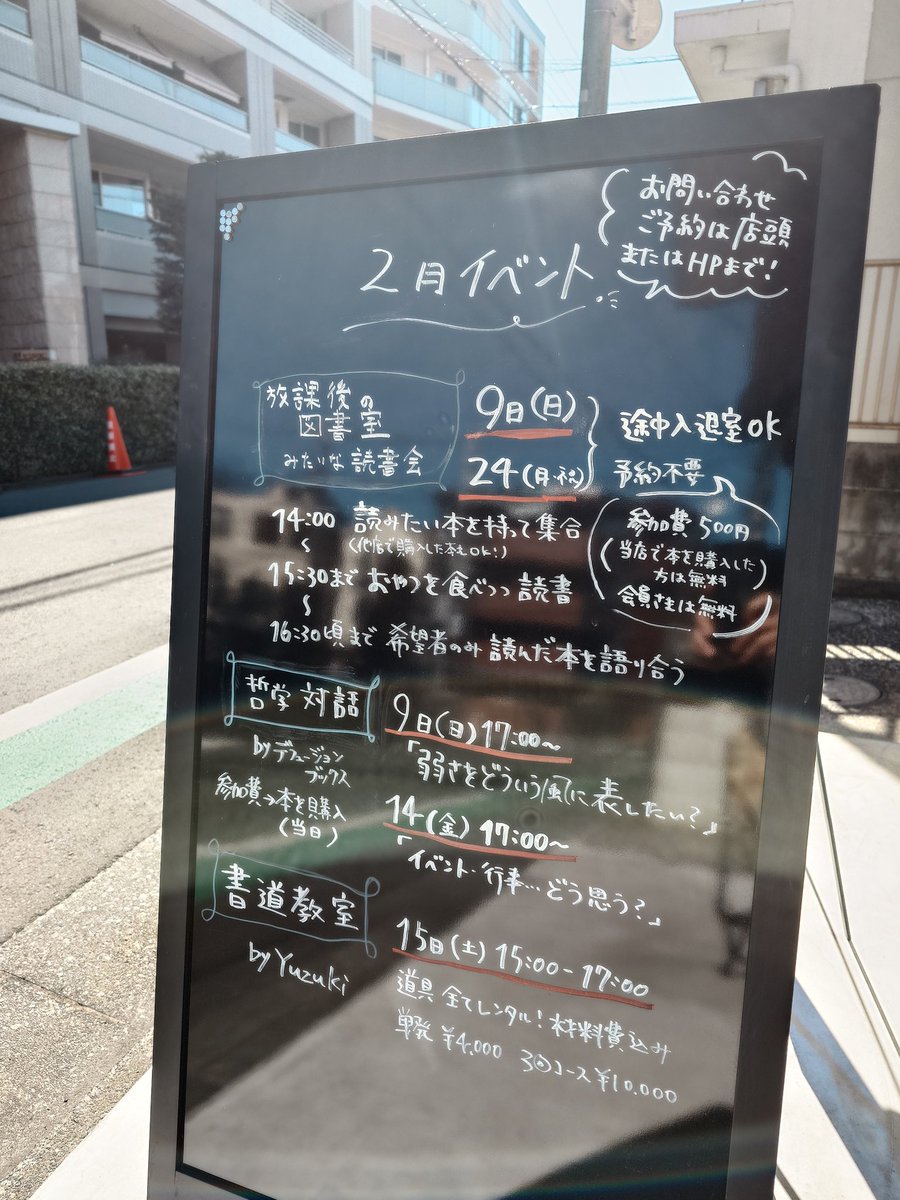 お問い合わせ
ご予約は店頭
またはHPまで!
2月イベント
放課後の
図書室
みたいな読書会
9日(日)
24(月・祝)
途中入退室OK
予約不要
参加費500円
(当店で本を購入した
方は無料)
会員さまは無料
14:00 読みたい本を持って集合
〜 (他店で購入した本もOK!)
15:30まで おやつを食べつつ読書
〜
16:30頃まで 希望者のみ読んだ本を語り合う
哲学対話
by デュージョン
ブックス
参加費→本を購入
(当日)
9日(日)17:00〜
「弱さをどういう風に表したい?」
14(金)17:00〜
「イベント・行事…どう思う?」
書道教室
by Yuzuki
15日(土)15:00-17:00
道具全てレンタル!材料費込み
単発¥4,000 3回コース¥10,000